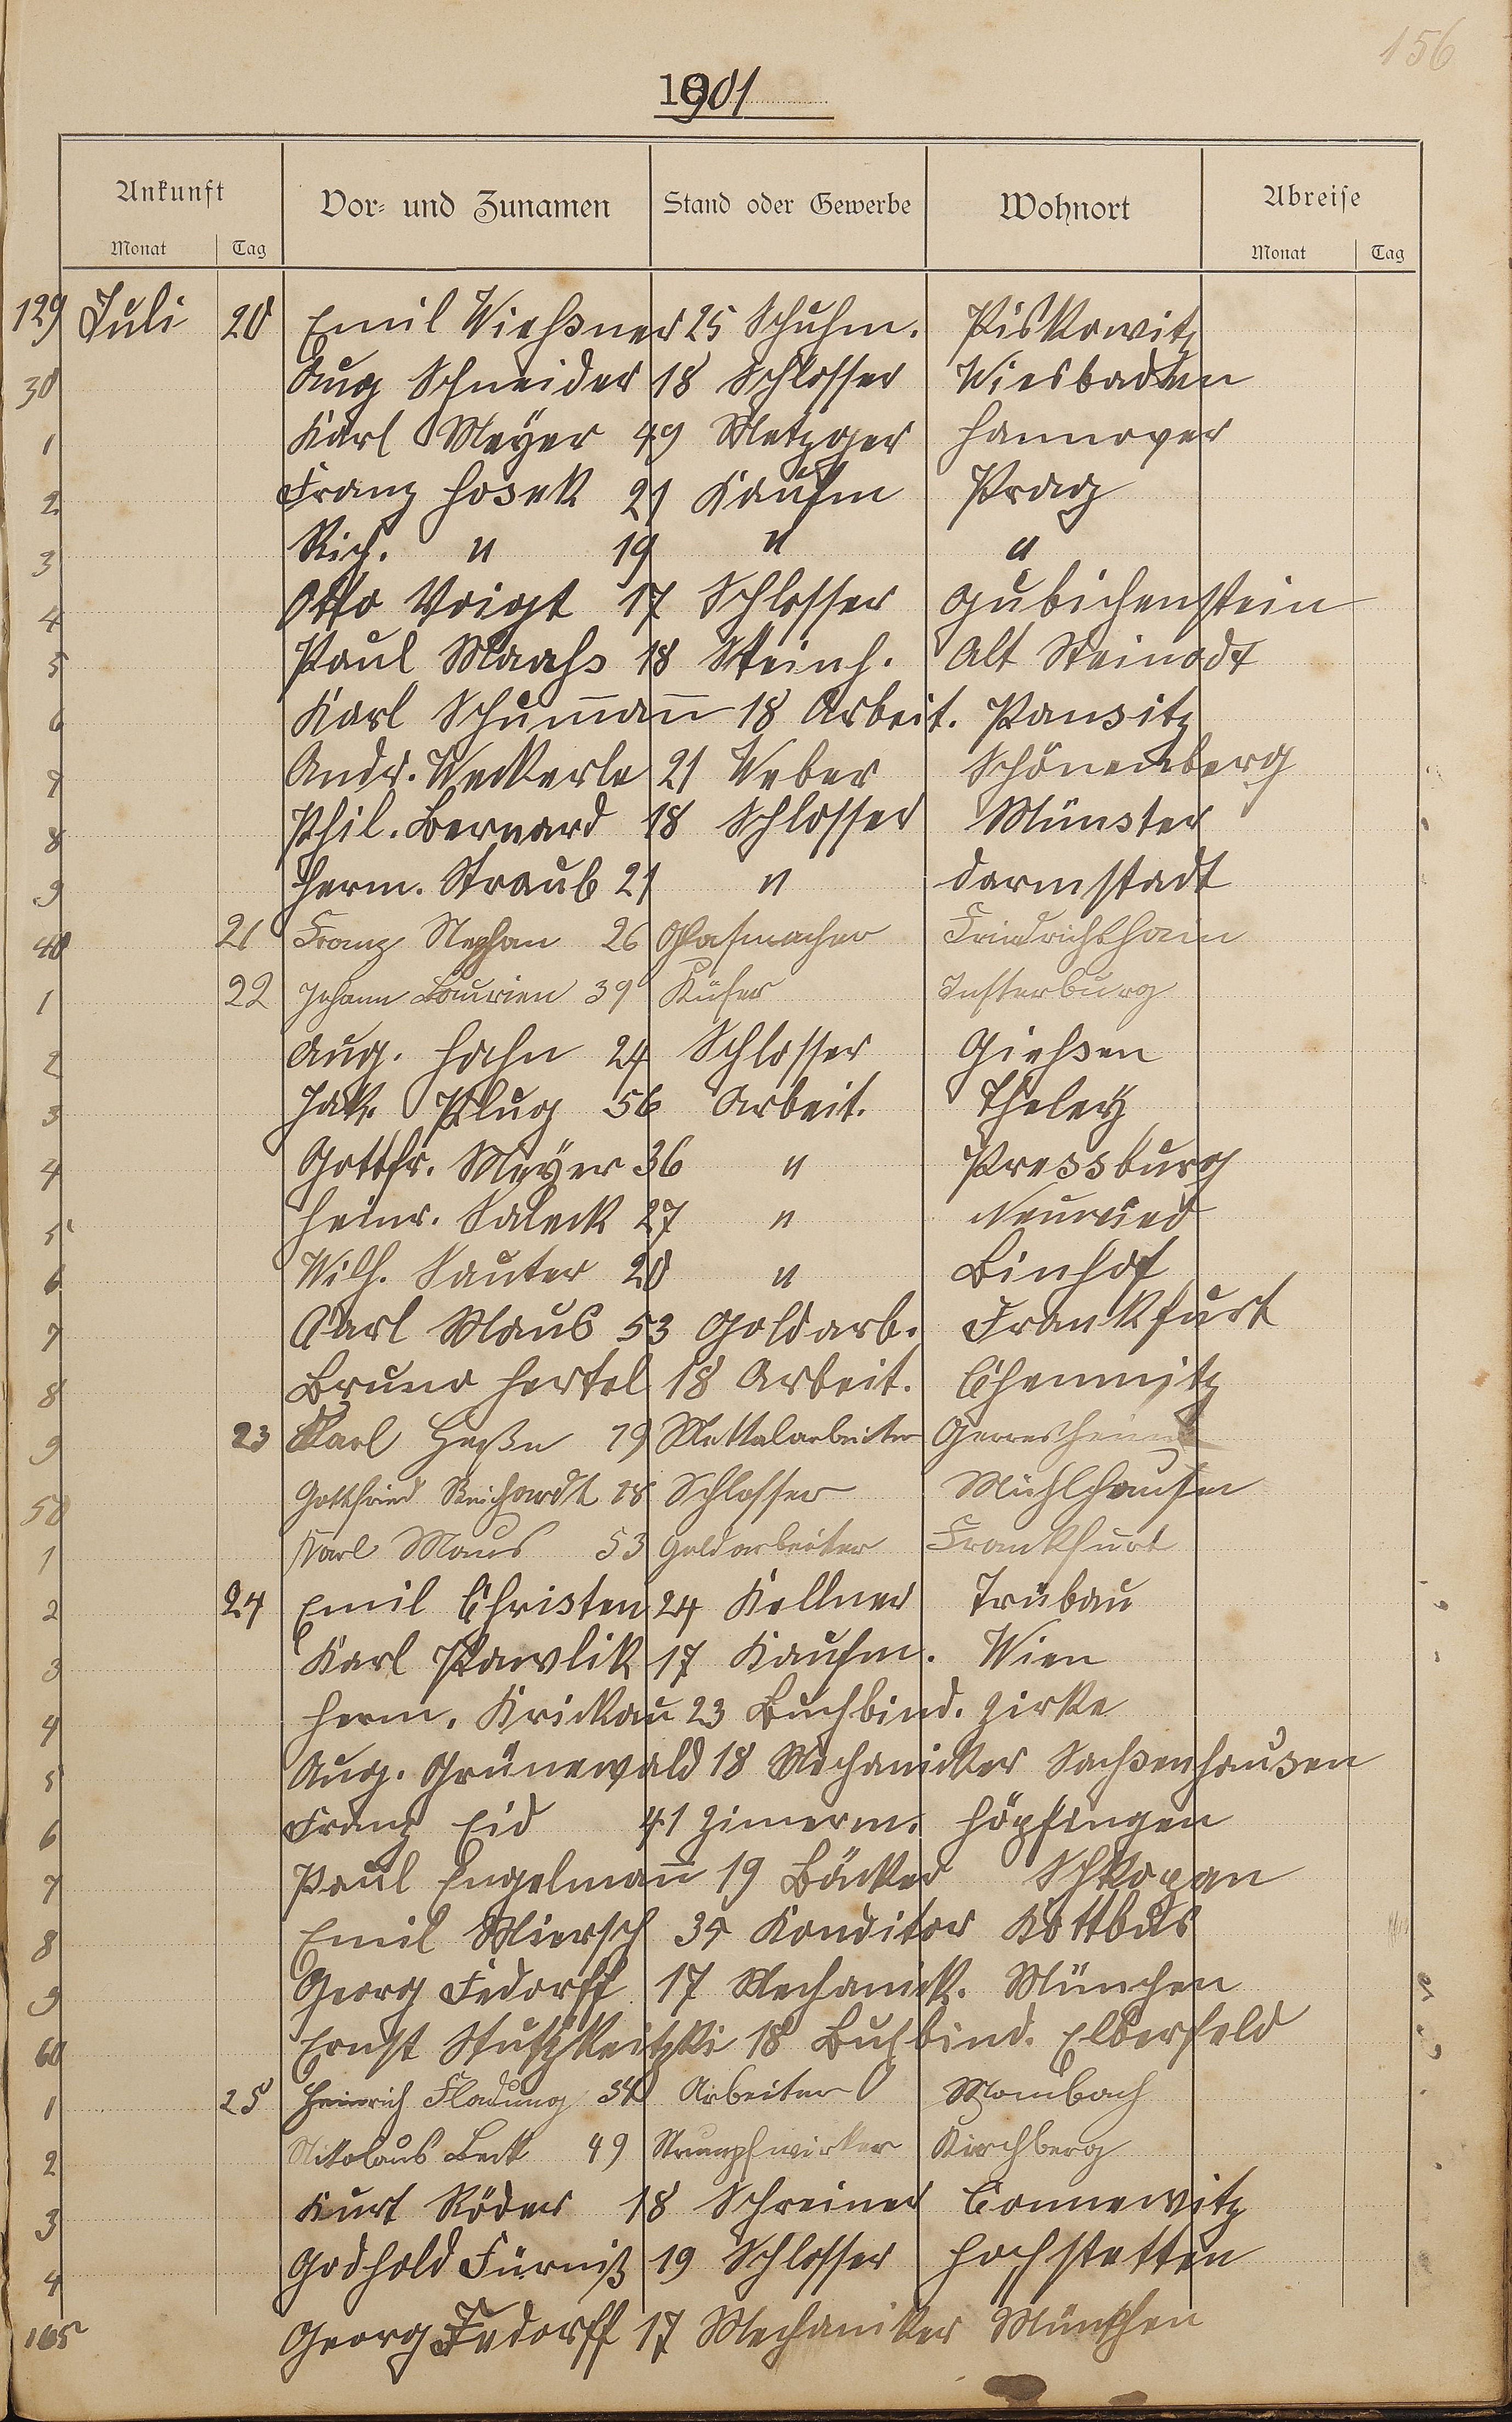 156
1901
Ankunft Vor- und Zunamen Stand oder Gewerbe Wohnort Abreise
Monat Tag Monat Tag
129 Juli 20 Emil Wießner 25 Schuhm. Piskowitz
30 Aug Schneider 18 Schlosser Wiesbaden
1 Karl Meÿer 49 Metzger Hannover
2 Franz Hosek 21 Kaufm Prag
3 Rich. " 19 " "
4 Otto Voigt 17 Schlosser Gubichenstein
5 Paul Maaßs 18 Steinh. Alt Steinodt
6 Karl Schuman̄ 18 Arbeit. Pansitz
7 Andr. Weckerle 21 Weber Schönenberg
8 Phil. Bernard 18 Schlosser Münster
9 Herm. Straub 21 " Darmstadt
40 21 Franz Stephan 26 Glasmacher Friedrichshain
1 22 Johann Laurien 39 Küfer Insterburg
2 Aug. Hahn 24 Schlosser Gießen
3 Jak. Plug 56 Arbeit. Theleÿ
4 Gottfr. Meÿer 36 " Pressburg
5 Heinr. Saleck 27 " Neuwied
6 Wilh. Sauter 20 " Binhof
7 Carl Maus 53 Goldarb. Frankfurt
8 Bruno Hertel 18 Arbeit. Chemnitz
9 23 Karl Heßn 19 Mettalarbeiter Gerresheim
50 Gottfried Reichardt 18 Schlosser Mühlhausen
1 Karl Maus 53 Goldarbeiter Frankfurt
2 24 Emil Christen 24 Kellner Trübau
3 Karl Pawlik 17 Kaufm. Wien
4 Herm. Krickau 23 Buchbind. Zirke
5 Aug. Grünewald 18 Mechanicker Sachsenhausen
6 Franz Eid 41 Zimerm. Höpfingen
7 Paul Engelman̄ 19 Bäcker Schkopau
8 Emil Miersch 34 Konditor Kottbus
9 Georg Fedorff 17 Mechanik. München
60 Ernst 18 Buchbind. Elberfeld
1 25 Heinrich Fladung 34 Arbeiter Mombach
2 Nikolaus Beck 49 Strumpfwirker Kirchberg
3 Kurt Röder 18 Schreiner Connewitz
4 Godhold Fürniß 19 Schlosser Hochstetten
165 Georg Fedorff 17 Mechaniker München